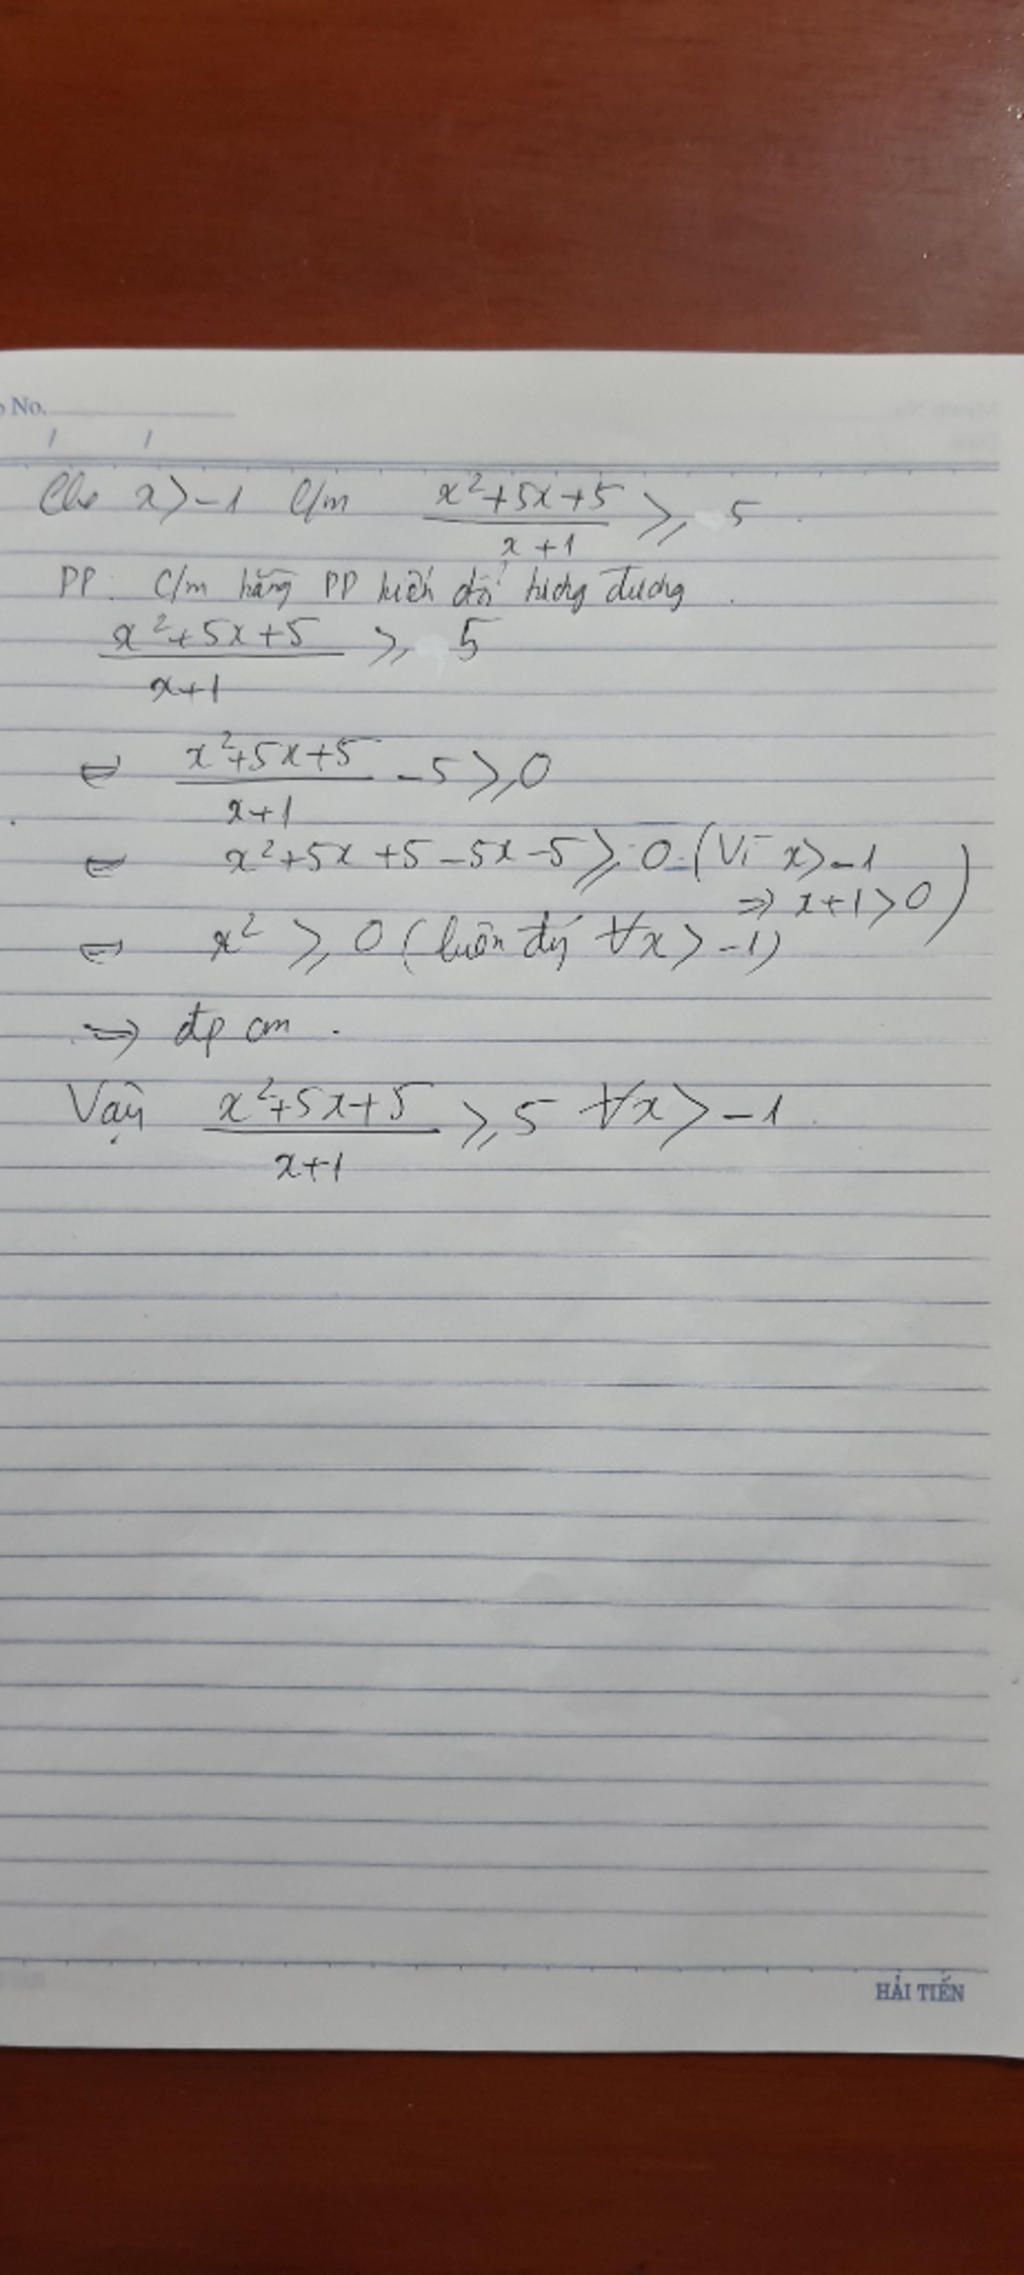 No.
Cho x > -1 C/m \frac{x^2+5x+5}{x+1} ≥ 5.
PP: C/m bằng PP biến đổi tương đương.
\frac{x^2+5x+5}{x+1} ≥ 5
⇔ \frac{x^2+5x+5}{x+1} - 5 ≥ 0
⇔ x²+5x+5-5x-5 ≥ 0 (Vì x > -1
⇒ x+1 > 0)
⇔ x² ≥ 0 (luôn đý ∀x > -1)
⇒ đpcm.
Vậy \frac{x^2+5x+5}{x+1} ≥ 5 ∀x > -1.
HẢI TIẾN